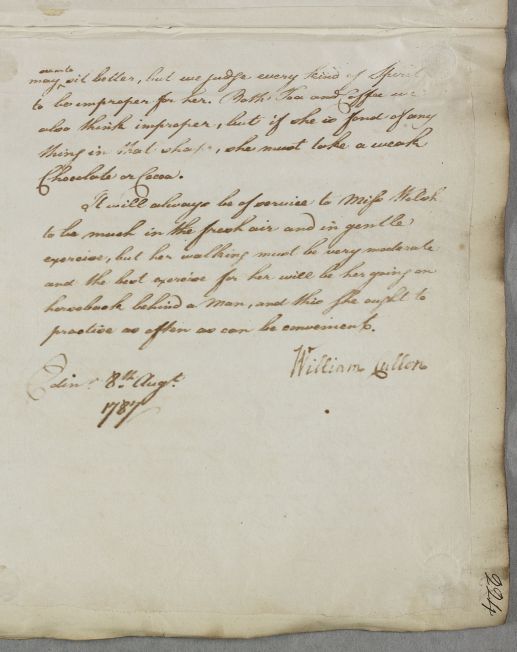 may sit better, but we judge every kind of Spirit
to be improper for her. Both Tea and Coffee we
also think improper, but if she is fond of any
thing in that shape, she must take a weak
Chocolate or Cocoa.
It will always be of service to Miss Welsh
to be much in the fresh air and in gentle
exercise, but her walking must be very moderate
and the best exercise for her will be her going on
horseback behind a Man, and this she ought to
practise as often as can be convenient.
William Cullen
Edinr 8th Augt
1787
224